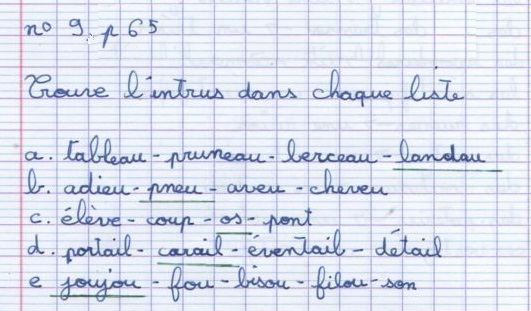 n° 9. p 65
Trouve l'intrus dans chaque liste
a. tableau - pruneau - berceau - landau
b. adieu - pneu - aveu - cheveu
c. élève - coup - os - pont
d. portail - corail - éventail - détail
e joujou - fou - bisou - filou - son